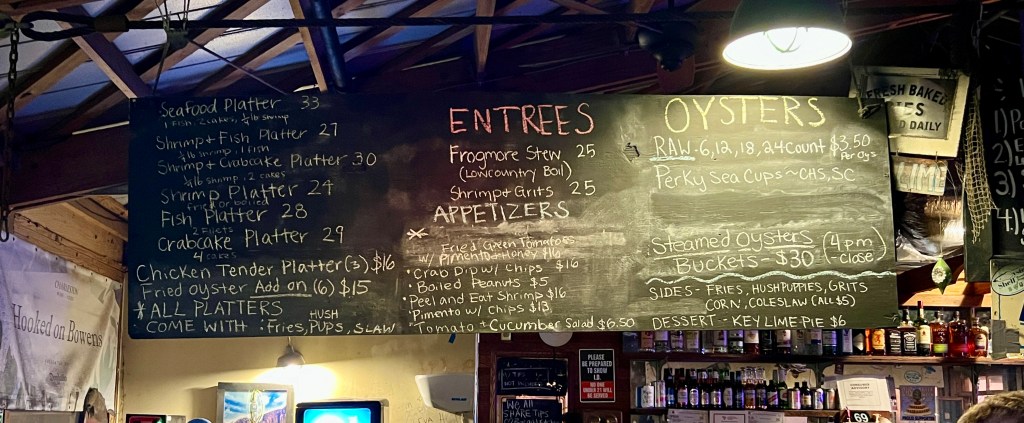 Seafood Platter 33
1 Fish, 2 cakes, 1/4 lb shrimp
Shrimp + Fish Platter 27
1/4 lb shrimp, 1 fish
Shrimp + Crabcake Platter 30
1/4 lb shrimp, 2 cakes
Shrimp Platter 24
fried or boiled
Fish Platter 28
2 Filets
Crabcake Platter 29
4 cakes
Chicken Tender Platter (3) $16
Fried oyster Add on (6) $15
* ALL PLATTERS
COME WITH : Fries, HUSH PUPS, SLAW
ENTREES
Frogmore Stew 25
(Lowcountry Boil)
Shrimp + Grits 25
APPETIZERS
* Fried Green Tomatoes
w/ Pimento + Honey $16
• Crab Dip w/ Chips $16
• Boiled Peanuts $5
• Peel and Eat Shrimp $16
• Pimento w/ Chips $13
• Tomato + Cucumber Salad $6.50
OYSTERS
RAW - 6, 12, 18, 24 count $3.50
Per Oys
Perky Sea Cups ~ CHS, SC
Steamed Oysters (4pm
Buckets - $30 -close)
SIDES - FRIES, HUSHPUPPIES, GRITS
CORN, COLESLAW (ALL $5)
DESSERT - KEY LIME PIE $6
FRESH BAKED
PIES
DAILY
1)
2)
3)
4)
CHARLESTON
Hooked on Bowens
PLEASE
BE PREPARED
TO SHOW
I.D.
NO ONE
UNDER 21
WILL BE
SERVED
We All
SHARE TIPS
69